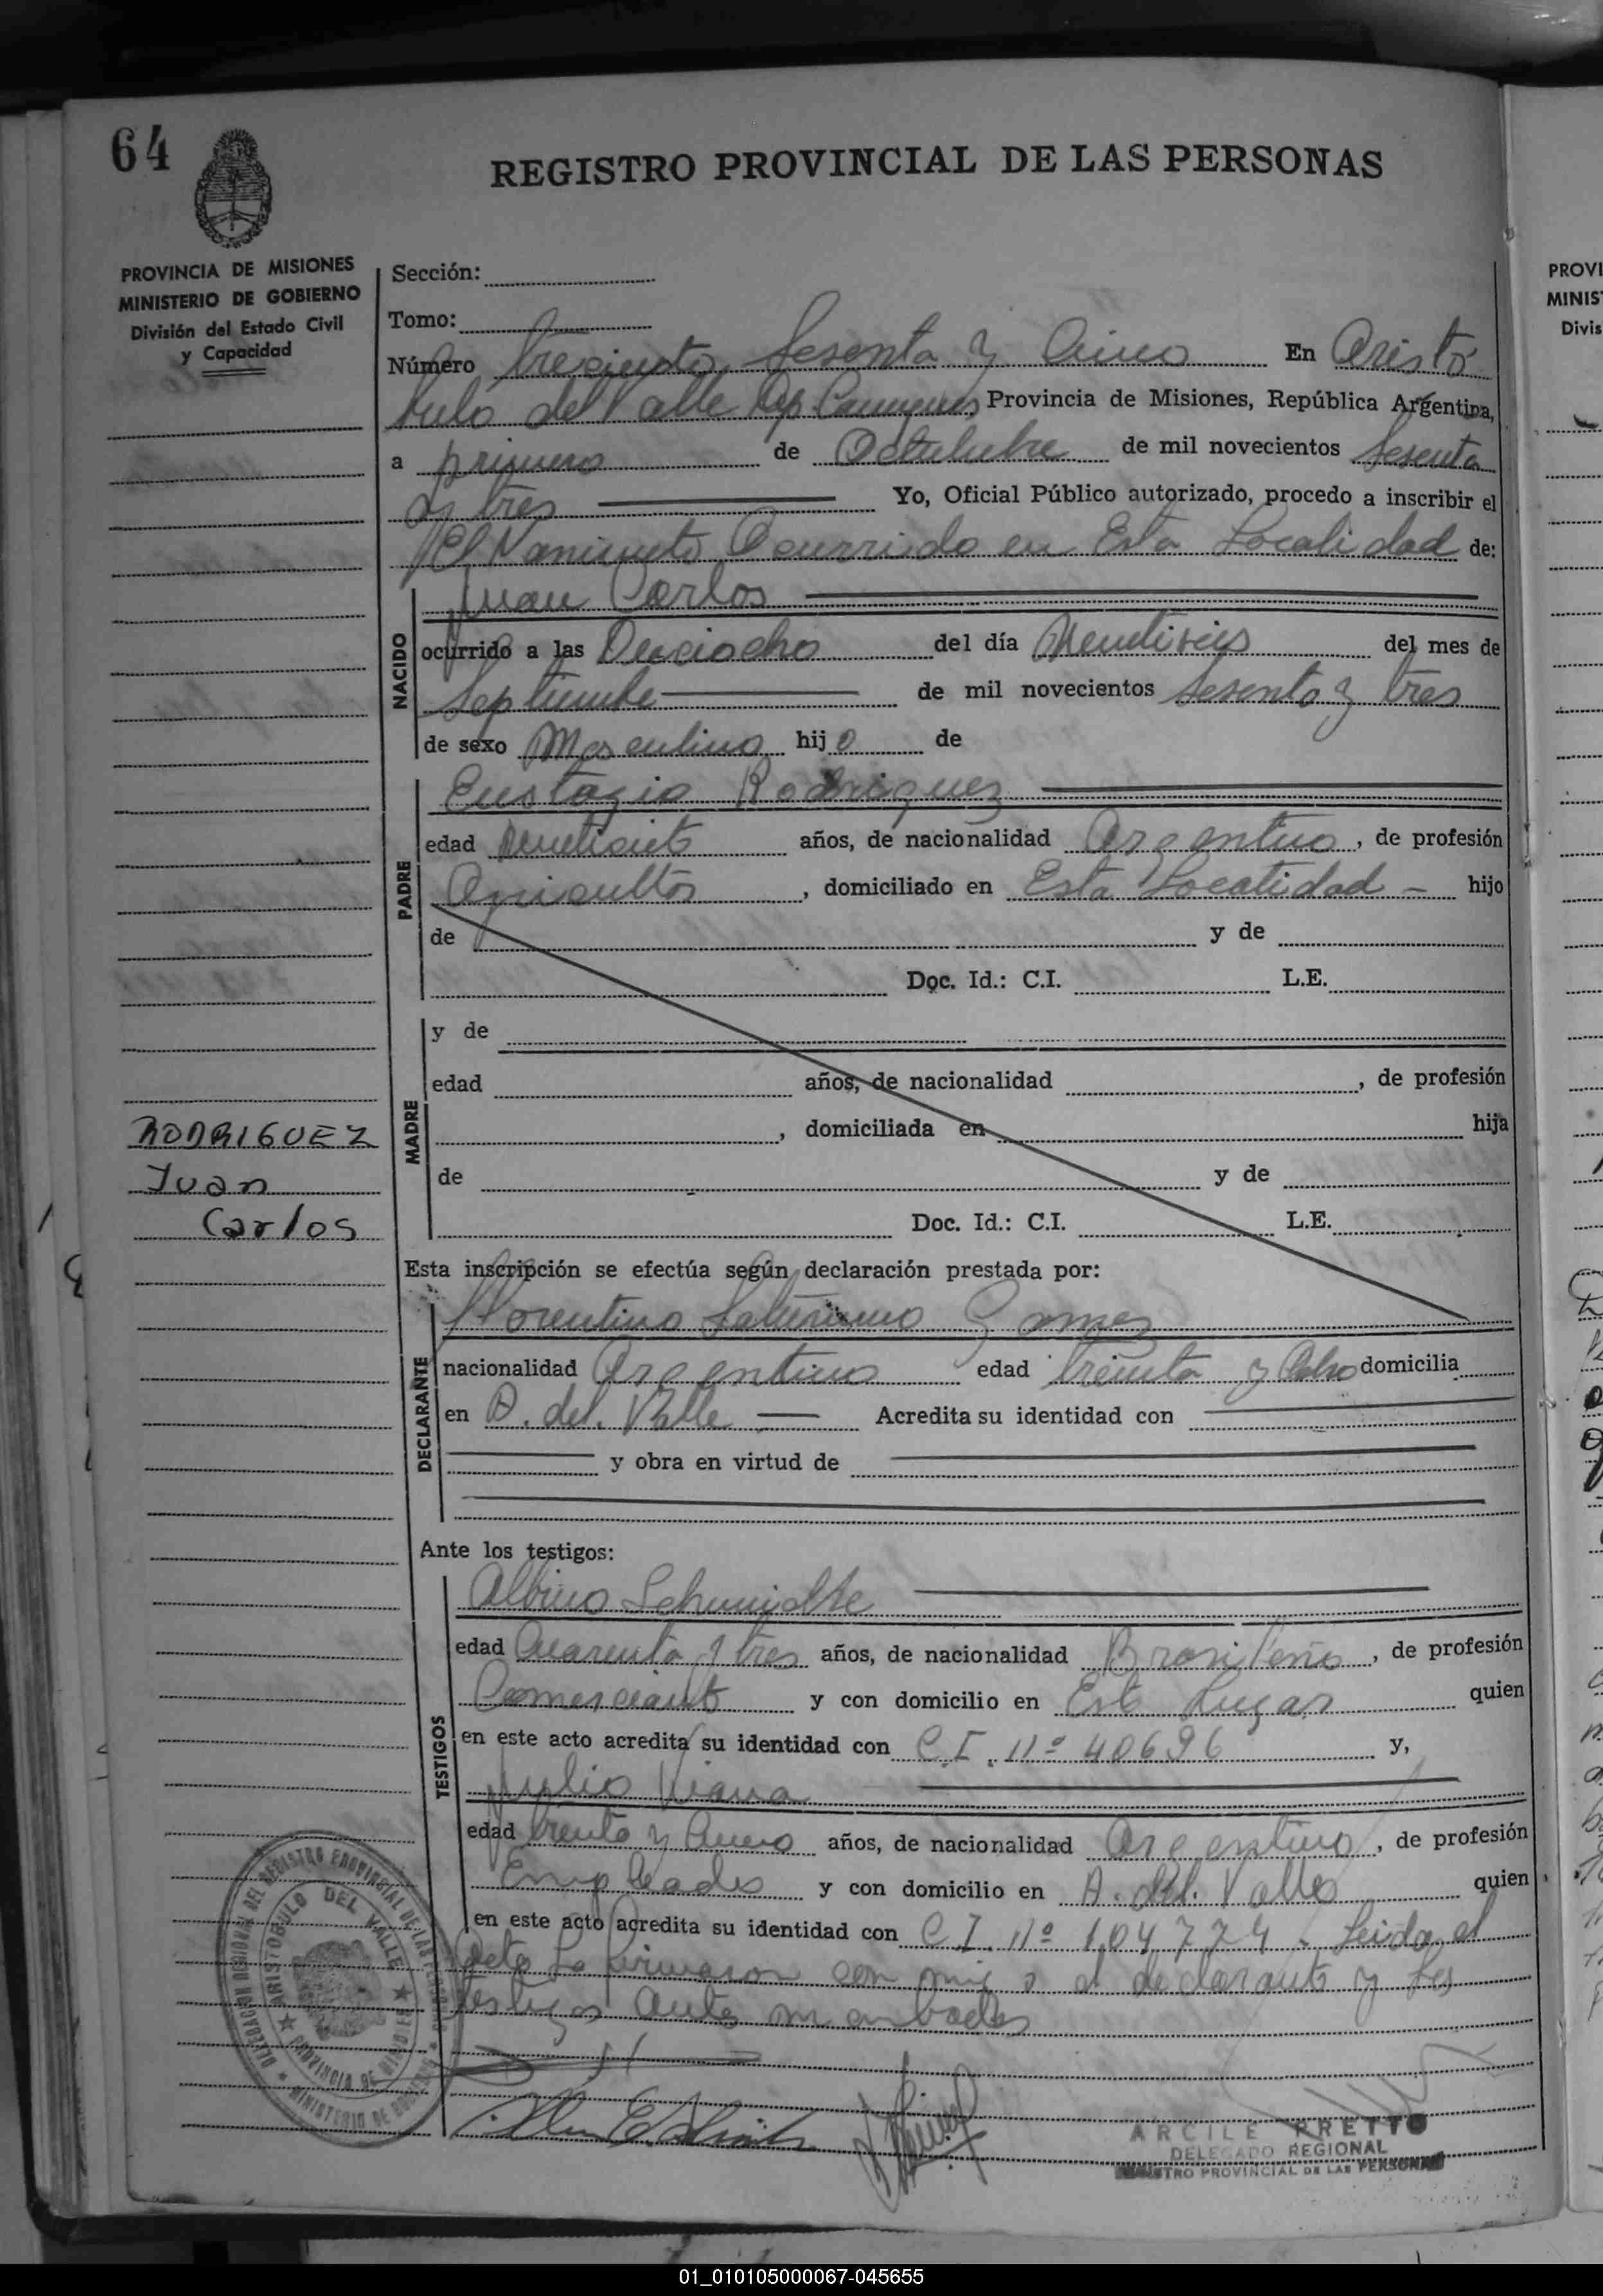 64
REGISTRO PROVINCIAL DE LAS PERSONAS
PROVINCIA DE MISIONES
MINISTERIO DE GOBIERNO
División del Estado Civil
y Capacidad
Sección:
Tomo:
Número Sesenta y Cinco En Aristó
bulo del Valle Provincia de Misiones, República Argentina,
a primero de Octulubre de mil novecientos Sesenta
y tres Yo, Oficial Público autorizado, procedo a inscribir el
El Ocurrido en Esta Localidad de:
NACIDO
Juan Carlos
ocurrido a las Deciocho del día del mes de
Septiembre de mil novecientos Sesenta y tres
de sexo Masculino hijo de
PADRE
Eustazio Rodriguez
edad años, de nacionalidad Argentino, de profesión
Agricultor, domiciliado en Esta Localidad - hijo
de y de
Doc. Id.: C.I. L.E.
MADRE
y de
edad años, de nacionalidad , de profesión
, domiciliada en hija
de y de
Doc. Id.: C.I. L.E.
RODRIGUEZ
Juan
Carlos
Esta inscripción se efectúa según declaración prestada por:
DECLARANTE
Florentino Gomez
nacionalidad Argentino edad treinta y domicilia
en A. del. Valle Acredita su identidad con
y obra en virtud de
Ante los testigos:
TESTIGOS
Albino
edad Cuarenta y tres años, de nacionalidad Brasileño, de profesión
Comerciante y con domicilio en Este Lugar quien
en este acto acredita su identidad con C.I. Nº 40696 y,
Julio Viana
edad treinta y años, de nacionalidad Argentino, de profesión
Empleado y con domicilio en A. del. Valle quien
en este acto acredita su identidad con C.I. Nº 104774. Leida el
Acta La Firmaron con mi el declarante y los
testigos
DELEGACION REGIONAL DEL REGISTRO PROVINCIAL DE LAS PERSONAS
ARISTOBULO DEL VALLE
PROVINCIA DE MISIONES
MINISTERIO DE GOBIERNO
ARCILE PRETTO
DELEGADO REGIONAL
REGISTRO PROVINCIAL DE LAS PERSONAS
PROVI
MINIS
Divis
01_010105000067-045655